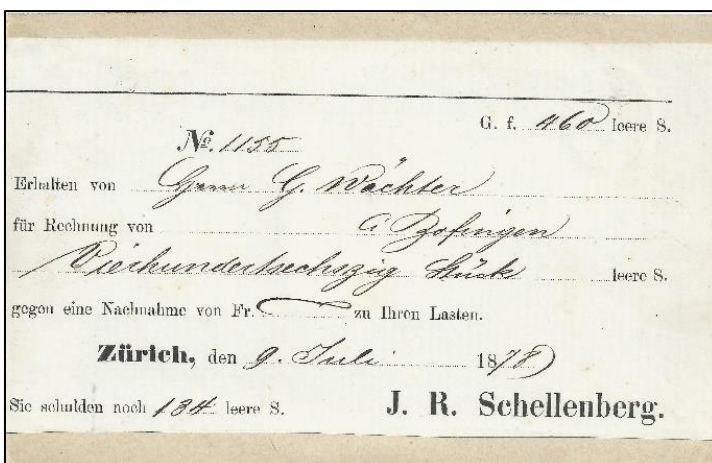 G. f. 460 leere S.
No. 1155
Erhalten von Herrn G. Wächter
für Rechnung von a Zofingen
Vierhundertsechszig Stück leere S.
gegen eine Nachnahme von Fr. zu Ihren Lasten.
Zürich, den 9. Juli 1878
Sie schulden noch 134 leere S. J. R. Schellenberg.